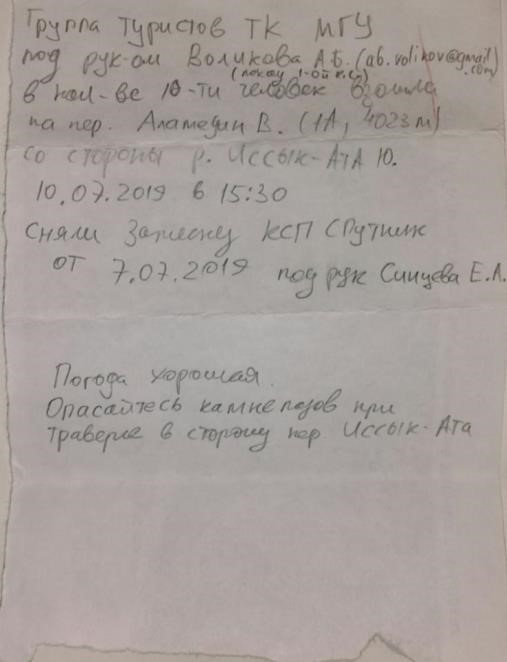 Группа туристов ТК МГУ
под рук-ом Воликова А.Б. (ab.volikov@gmail.com)
в кол-ве 10-ти человек взошла
на пер. Аламедин В. (1А, 4023 м)
со стороны р. Иссык-Ата Ю.
10.07.2019 в 15:30
Сняли записку КСП Спутник
от 7.07.2019 под рук Синцева Е.Л.
Погода хорошая.
Опасайтесь камнепадов при
траверсе в сторону пер Иссык-Ата